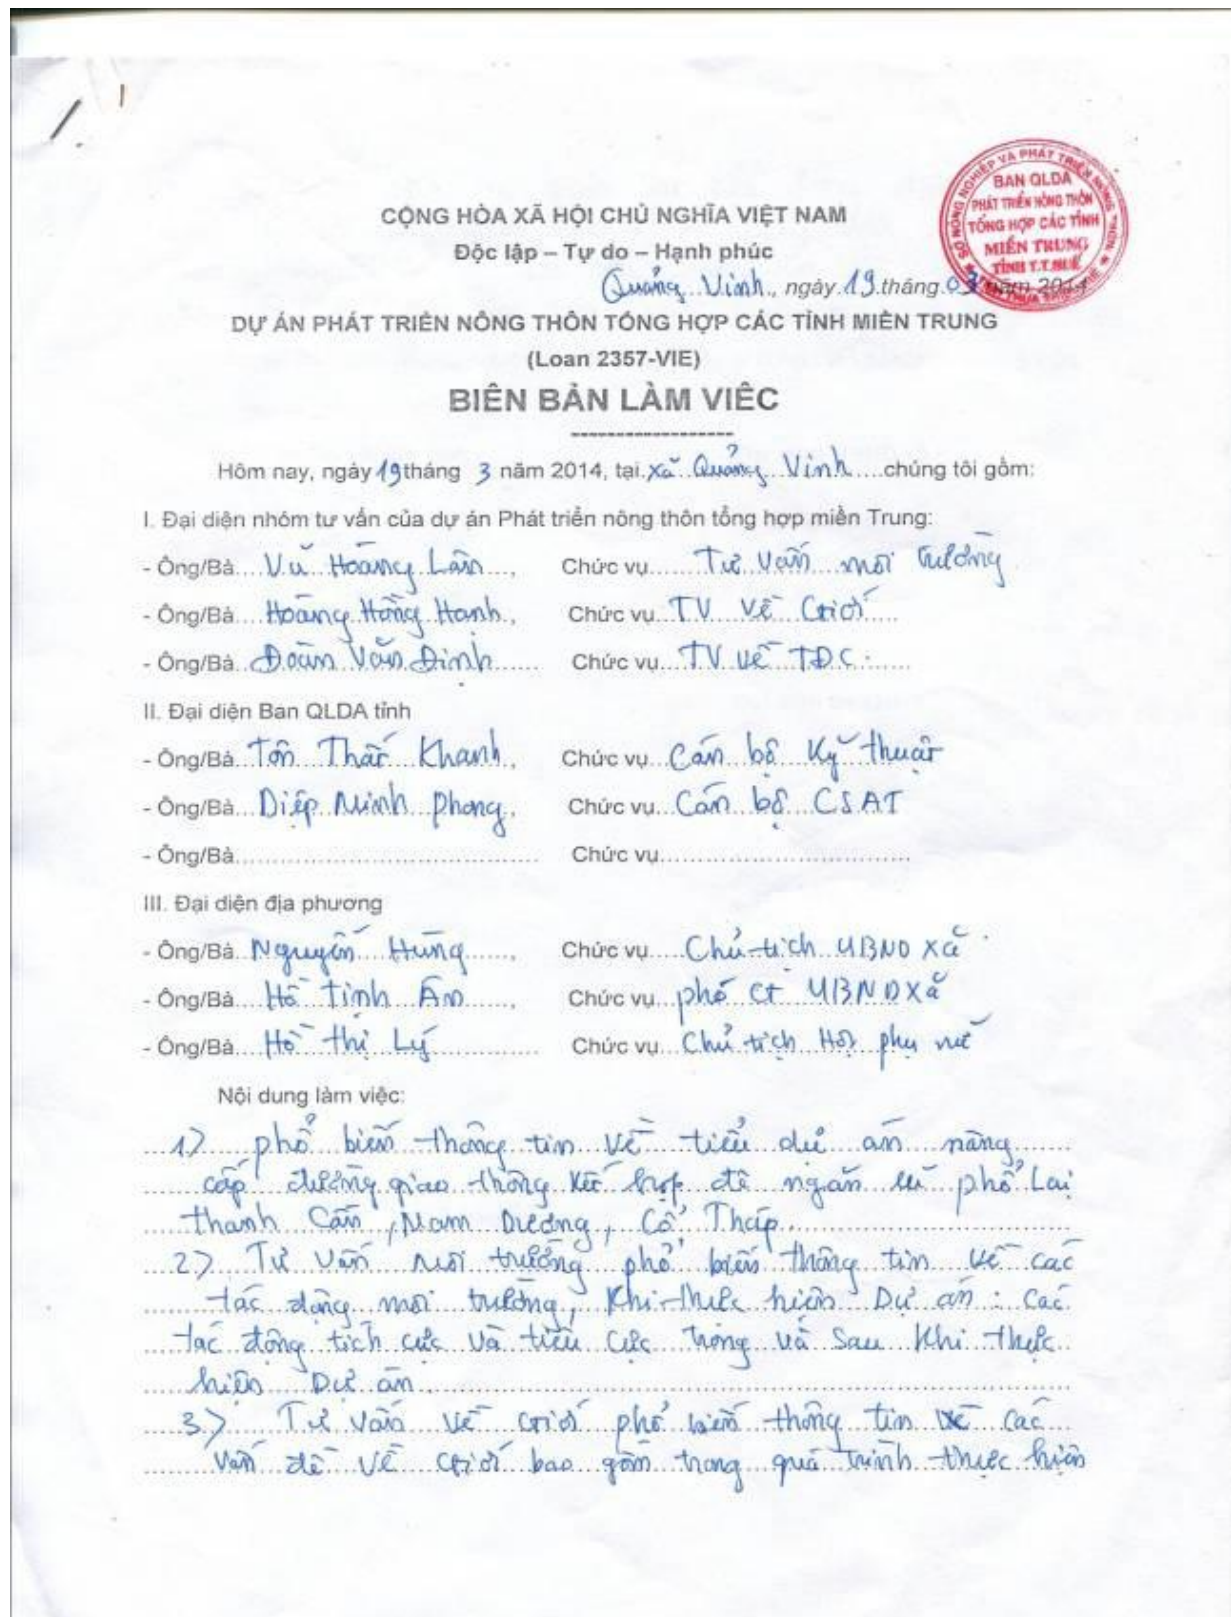 SỞ NÔNG NGHIỆP VÀ PHÁT TRIỂN NÔNG THÔN
BAN QLDA
PHÁT TRIỂN NÔNG THÔN
TỔNG HỢP CÁC TỈNH
MIỀN TRUNG
TỈNH T.T.HUẾ
CỘNG HÒA XÃ HỘI CHỦ NGHĨA VIỆT NAM
Độc lập – Tự do – Hạnh phúc
Quảng Vinh, ngày 19 tháng 03 năm 2014
DỰ ÁN PHÁT TRIỂN NÔNG THÔN TỔNG HỢP CÁC TỈNH MIỀN TRUNG
(Loan 2357-VIE)
BIÊN BẢN LÀM VIỆC
Hôm nay, ngày 19 tháng 3 năm 2014, tại xã Quảng Vinh chúng tôi gồm:
I. Đại diện nhóm tư vấn của dự án Phát triển nông thôn tổng hợp miền Trung:
- Ông/Bà Vũ Hoàng Lân, Chức vụ Tư vấn môi trường
- Ông/Bà Hoàng Hồng Hạnh, Chức vụ TV về Giới
- Ông/Bà Đoàn Văn Định Chức vụ TV về TĐC
II. Đại diện Ban QLDA tỉnh
- Ông/Bà Tôn Thất Khanh, Chức vụ Cán bộ Kỹ thuật
- Ông/Bà Diệp Minh Phong, Chức vụ Cán bộ CSAT
- Ông/Bà Chức vụ
III. Đại diện địa phương
- Ông/Bà Nguyễn Hùng, Chức vụ Chủ tịch UBND xã
- Ông/Bà Hồ Tịnh Ân, Chức vụ phó CT UBND xã
- Ông/Bà Hồ Thị Lý Chức vụ Chủ tịch Hội phụ nữ
Nội dung làm việc:
1) phổ biến thông tin về tiểu dự án nâng
cấp đường giao thông kết hợp đê ngăn lũ phổ Lại
Thanh Cần, Nam Dương, Cổ Tháp.
2) Tư vấn Môi trường phổ biến thông tin về các
tác động môi trường, khi thực hiện Dự án: các
tác động tích cực và tiêu cực trong và sau khi thực
hiện Dự án
3) Tư vấn về Giới phổ biến thông tin về các
vấn đề về Giới bao gồm trong quá trình thực hiện